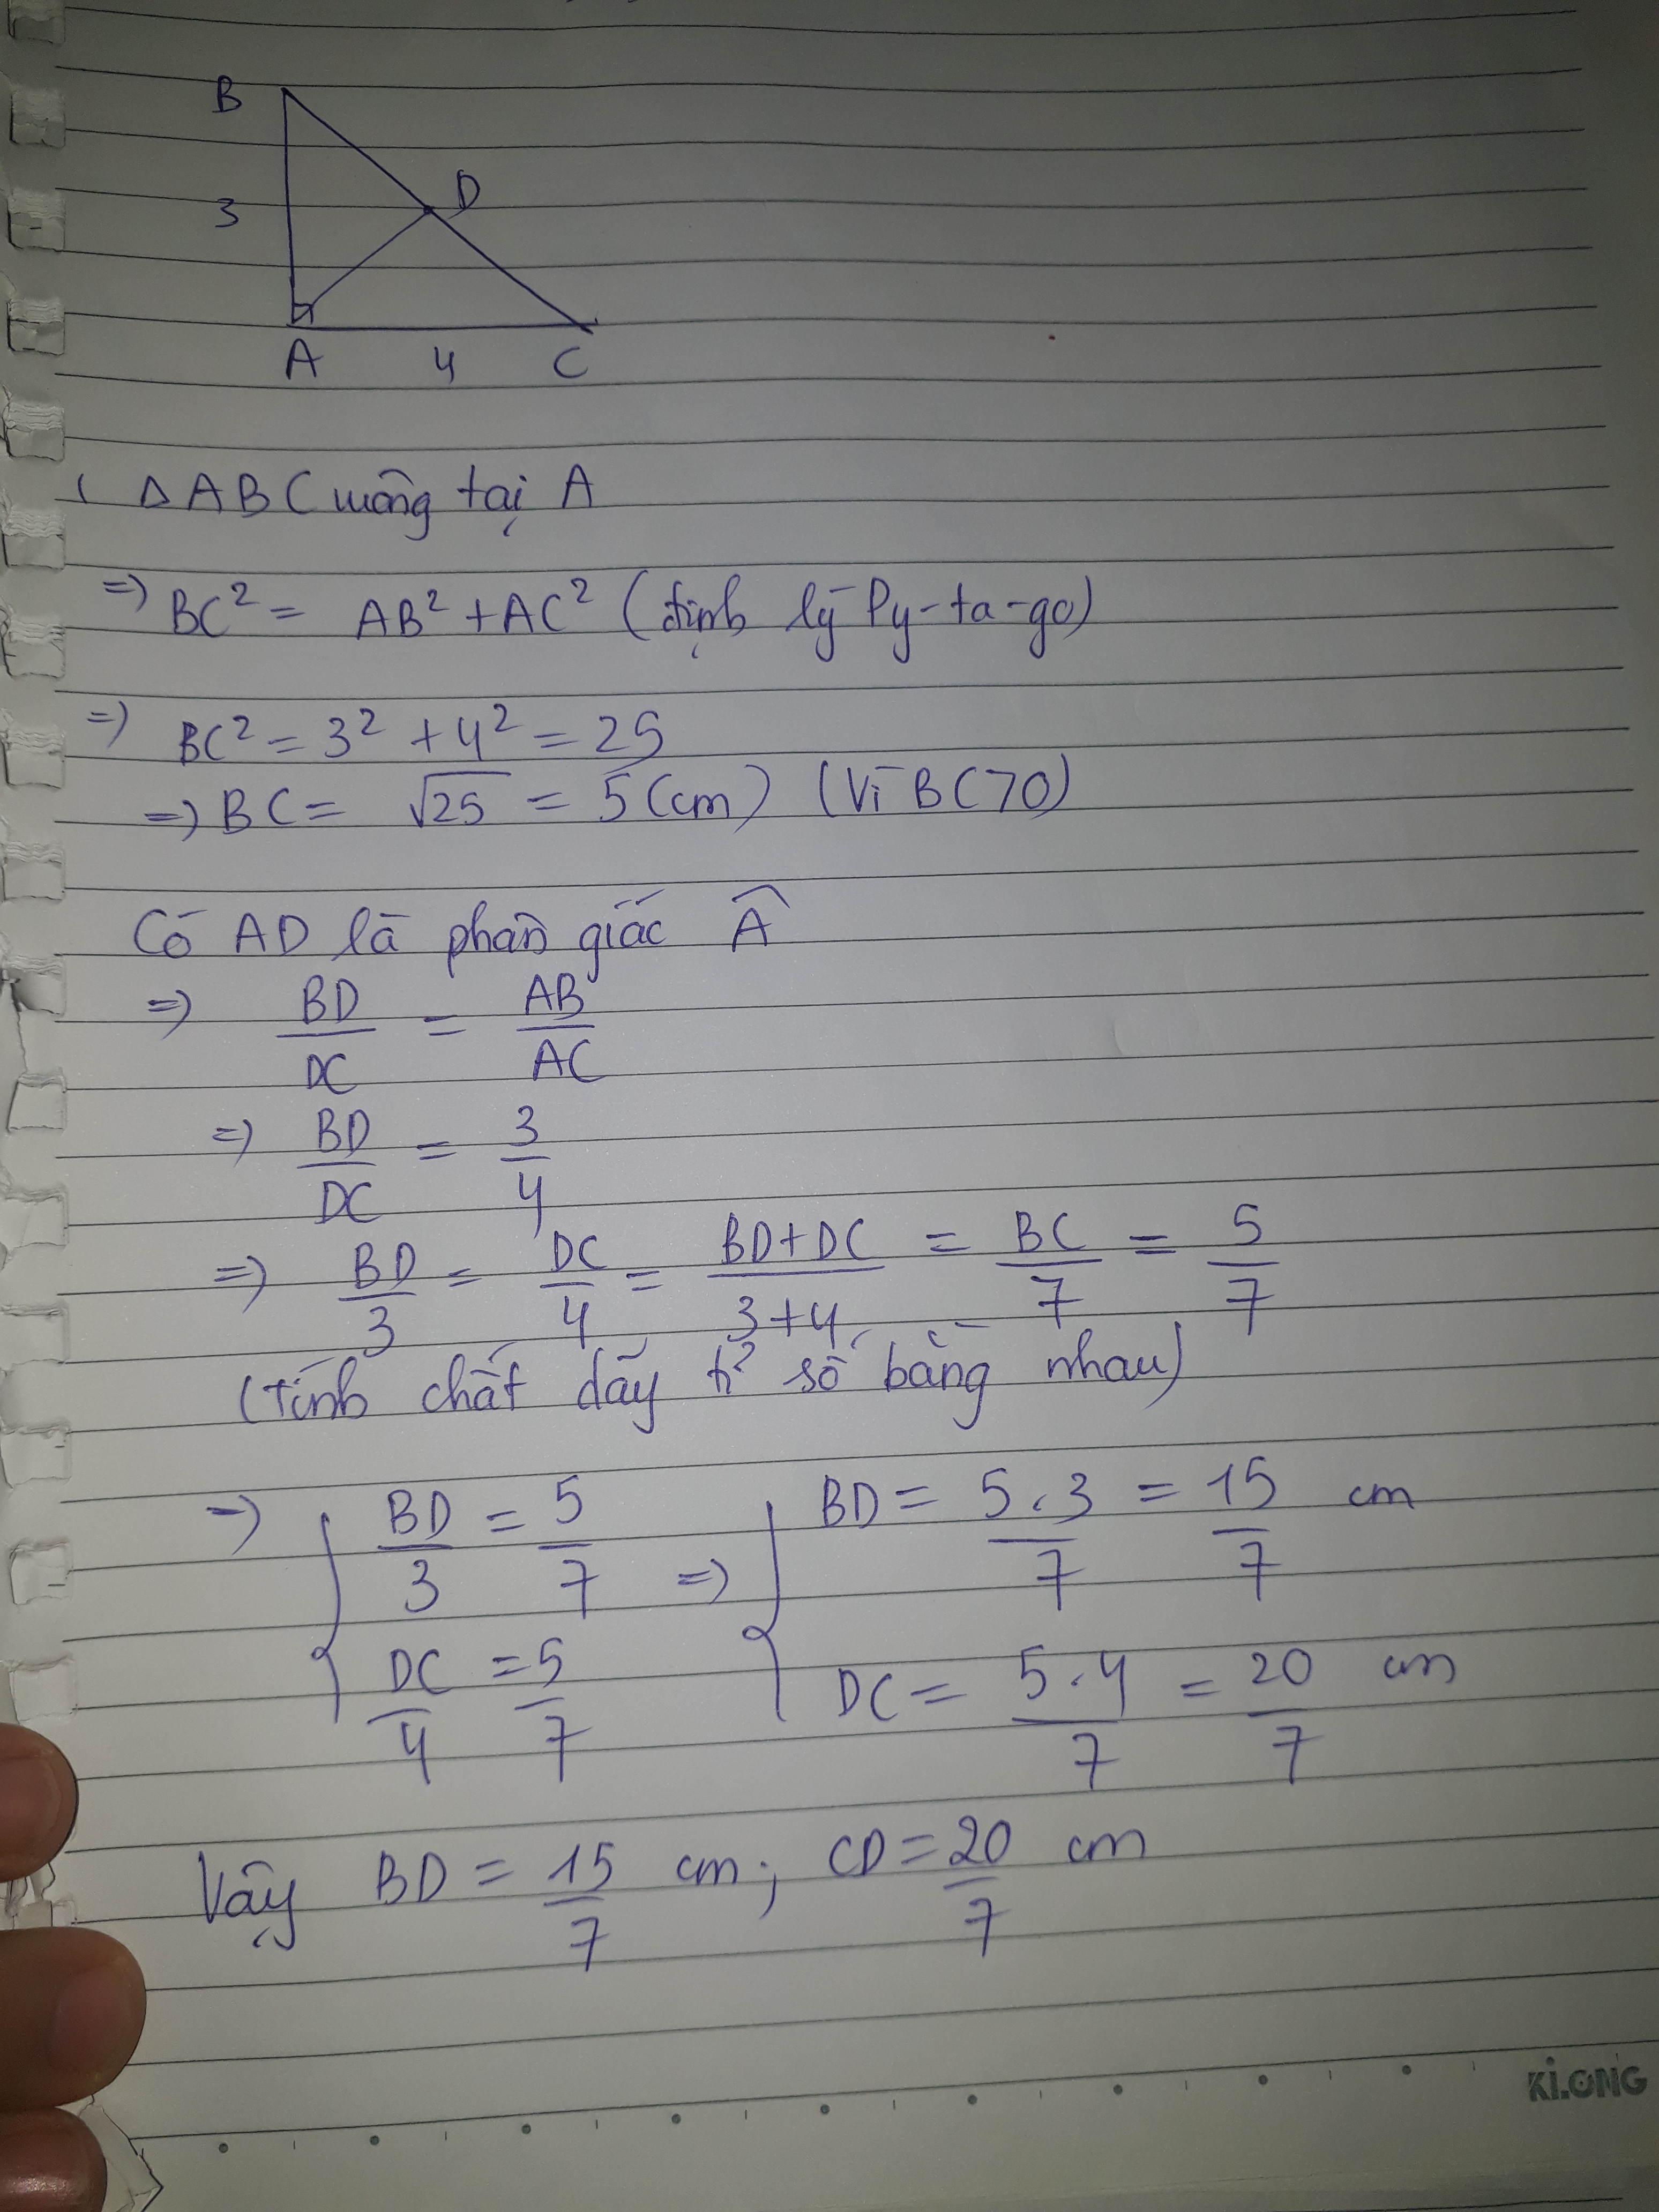 B
D
3
A 4 C
( Δ ABC vuông tại A
=> BC² = AB² + AC² (định lý Py-ta-go)
=> BC² = 3² + 4² = 25
=> BC = √25 = 5 (cm) (Vì BC > 0)
Có AD là phân giác Â
=> BD/DC = AB/AC
=> BD/DC = 3/4
=> BD/3 = DC/4 = BD+DC/3+4 = BC/7 = 5/7
(Tính chất dãy tỉ số bằng nhau)
=> { BD/3 = 5/7 => { BD = 5.3/7 = 15/7 cm
DC/4 = 5/7 DC = 5.4/7 = 20/7 cm
Vậy BD = 15/7 cm; CD = 20/7 cm
Ki.ONG